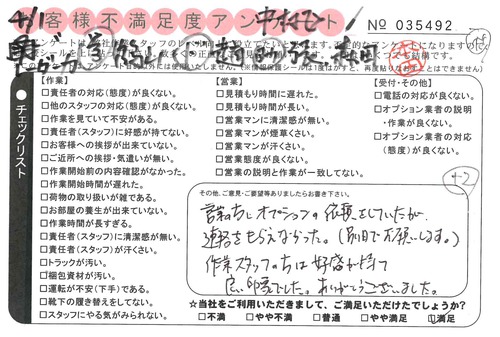 4/1
お客様不満足度アンケート
№ 035492
【作業】
□責任者の対応(態度)が良くない。
□他のスタッフの対応(態度)が良くない。
□作業を見ていて不安がある。
□責任者(スタッフ)に好感が持てない。
□お客様への挨拶が出来ていない。
□ご近所への挨拶・気遣いが無い。
□作業開始前の内容確認がなかった。
□作業開始時間が遅れた。
□荷物の取り扱いが雑である。
□お部屋の養生が出来ていない。
□作業時間が長すぎる。
□責任者(スタッフ)に清潔感が無い。
□責任者(スタッフ)が汗くさい。
□トラックが汚い。
□梱包資材が汚い。
□運転が不安(下手)である。
□靴下の履き替えをしてない。
□スタッフにやる気がみられない。
【営業】
□見積もり時間に遅れた。
□見積もり時間が長い。
□営業マンに清潔感が無い。
□営業マンが煙草くさい。
□営業マンが汗くさい。
□営業態度が良くない。
□営業の説明と作業が一致してない。
【受付・その他】
□電話の対応が良くない。
□オプション業者の説明
・作業が良くない。
□オプション業者の対応
(態度)が良くない。
チェックリスト
その他、ご意見・ご要望等ありましたらお書き下さい。
営業の方にオプションの依頼をしていたが、
連絡をもらえなかった。(別日でお願いします。)
作業スタッフの方は好感が持て
良い印象でした。ありがとうございました。
☆当社をご利用いただきまして、ご満足いただけたでしょうか?
□不満 □やや不満 □普通 □やや満足 □満足